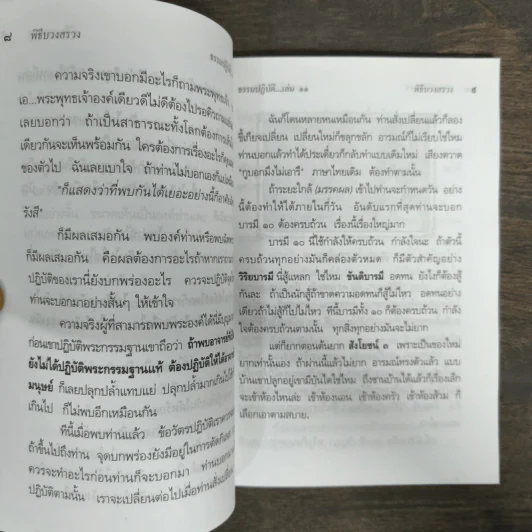 ๘ พิธีบวงสรวง
ความจริงเขาบอกมีอะไรก็ถามพระพุทธเจ้า
เอ...พระพุทธเจ้าองค์เดียวดีไม่ดีต้องไปรอตัว
เลยบอกว่า ถ้าเป็นสาธารณะทั้งโลกต้องการ
เดียวกันจะเห็นพร้อมกัน ใครต้องการเรื่องอะไร
ของตัวไป ฉันเลยเบาใจ ถ้าท่านไม่บอกเอง
"ก็แสดงว่าที่พบกันได้เยอะอย่างนี้ก็
รังสี"
ก็มีผลเสมอกัน พบองค์ท่านหรือพบ
ก็มีผลเสมอกัน คือผลต้องการอะไรถ้าหาก
ปฏิบัติของเรานี่ยังบกพร่องอะไร ควรจะปฏิบัติ
ท่านจะบอกมาอย่างสั้นๆ ให้เข้าใจ
ความจริงผู้ที่สามารถพบพระองค์ได้นี่
ก่อนเขาปฏิบัติพระกรรมฐานเขาถือว่า ถ้าพบอาจารย์
ยังไม่ได้ปฏิบัติพระกรรมฐานแท้ ต้องปฏิบัติให้ได้
มนุษย์ ก็เลยปลุกปล้ำแทบแย่ ปลุกปล้ำมากเกินไป
เกินไป ก็ไม่พบอีกเหมือนกัน
ทีนี้เมื่อพบท่านแล้ว ข้อวัตรปฏิบัติเรา
ถ้าขึ้นไปถึงท่าน จุดบกพร่องยังมีอยู่ในการตัด
ควรจะทำอะไรก่อนท่านก็จะบอกมา ท่านบอก
ปฏิบัติตามนั้น เราจะเปลี่ยนต่อไปเมื่อท่านสั่งเปลี่ยน
ธรรมปฏิบัติ...เล่ม ๑๑ พิธีบวงสรวง ๙
ฉันก็โดนหลายหนเหมือนกัน ท่านสั่งเปลี่ยนแล้วก็ลอง
ขี้เกียจเปลี่ยน เปลี่ยนใหม่ก็ขลุกขลัก อารมณ์ก็ไม่เรียบใช่ไหม
ท่านบอกแล้วทำได้ประเดี๋ยวก็กลับทำแบบเดิมใหม่ เสียงตวาด
"กูบอกมึงไม่เอารึ" ภาษาไทยเดิม ต้องทำตามนั้น
ถ้าระยะใกล้ (มรรคผล) เข้าไปท่านจะกำหนดวัน อย่าง
นี้ต้องทำให้ได้ภายในกี่วัน อันดับแรกที่สุดท่านจะบอก
บารมี ๑๐ ต้องครบถ้วน เรื่องนี้เรื่องใหญ่มาก
บารมี ๑๐ นี่ใช้กำลังให้ครบถ้วน กำลังใจนะ ถ้าตัวนี้
ครบถ้วนทุกอย่างมันก็คล่องตัวหมด ก็มีตัวสำคัญอย่าง
วิริยบารมี นี่สู้แหลก ใช่ไหม ขันติบารมี อดทน ยังไงก็ต้องสู้
กันละ ถ้าเป็นนักสู้ถ้าขาดความอดทนก็สู้ไม่ไหว อดทนอย่าง
เดียวถ้าไม่สู้ก็ไปไม่ไหว ทีนี้บารมีทั้ง ๑๐ ก็ต้องครบถ้วน กำลัง
ใจต้องครบถ้วนตามนั้น ทุกสิ่งทุกอย่างมันจะไม่ยาก
แต่ก็ยากตอนต้นยาก สังโยชน์ ๓ เพราะเป็นของใหม่
ยากเท่านั้นเอง ถ้าผ่านนี้แล้วไม่ยาก อารมณ์ทรงตัวแล้ว แบบ
บ้านเขาปลูกอยู่เขามีบันไดใช่ไหม ถึงชานบ้านได้แล้วก็เรื่องเล็ก
จะเข้าห้องไหนล่ะ เข้าห้องนอน เข้าห้องครัว เข้าห้องส้วม ก็
เลือกเอาตามสบาย.